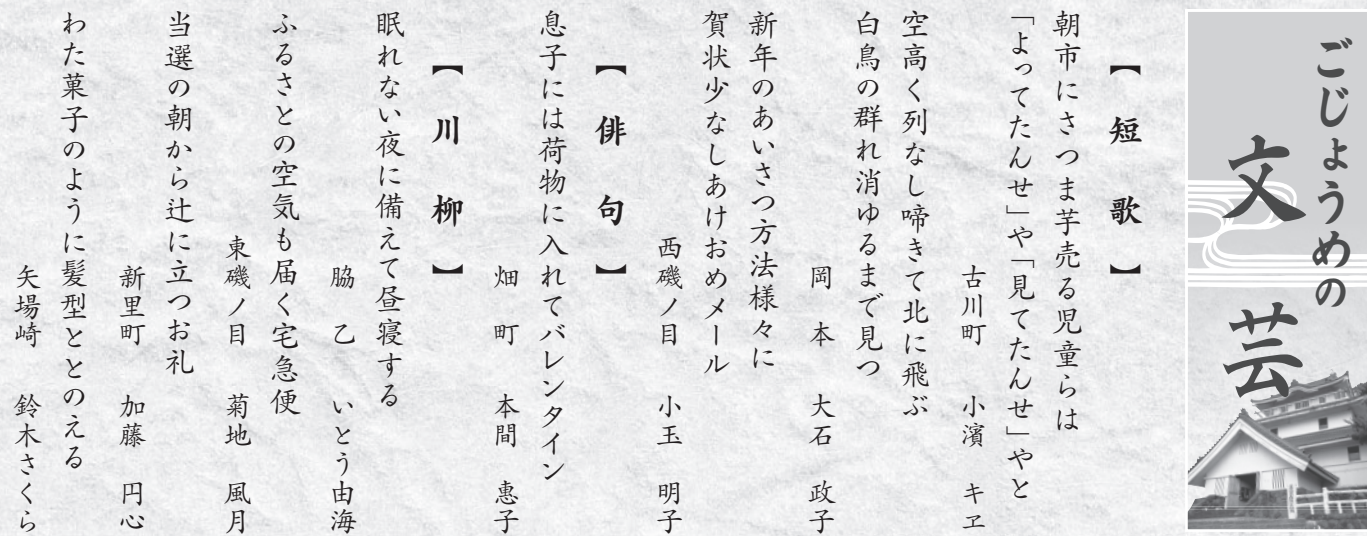 ごじょうめの
文芸
【短歌】
朝市にさつま芋売る児童らは
「よってたんせ」や「見てたんせ」やと
古川町　小濱　キヱ
空高く列なし啼きて北に飛ぶ
白鳥の群れ消ゆるまで見つ
岡本　大石　政子
新年のあいさつ方法様々に
賀状少なしあけおめメール
西磯ノ目　小玉　明子
【俳句】
息子には荷物に入れてバレンタイン
畑町　本間　惠子
【川柳】
眠れない夜に備えて昼寝する
脇乙　いとう由海
ふるさとの空気も届く宅急便
東磯ノ目　菊地　風月
当選の朝から辻に立つお礼
新里町　加藤　円心
わた菓子のように髪型ととのえる
矢場崎　鈴木さくら